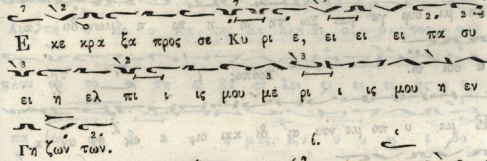 Ε κε κρα ξα προς σε Κυ ρι ε, ει ει ει πα συ
ει η ελ πι ι ις μου με ρι ι ις μου η εν
Γη ζων των.